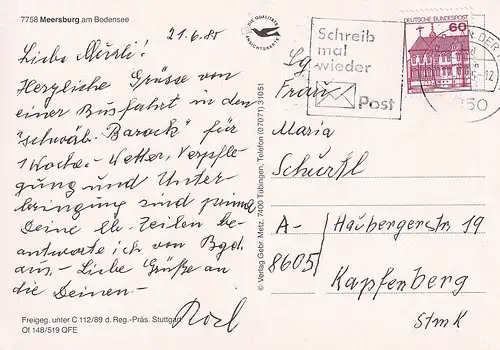 7758 Meersburg am Bodensee
21.6.85
Liebe
Herzliche Grüsse von
einer Busfahrt in den
"schwäb. Barock" für
1 Woche. - Wetter, Verpfle-
gung und Unter-
bringung sind prima
Deine lb. Zeilen be-
antworte ich von Bgd.
aus. - Liebe Grüße an
die Deinen. -
Freigeg. unter C 112/89 d. Reg.-Präs. Stuttgart
Of 148/519 QFE
DIE QUALITÄTS
ANSICHTSKARTE
© Verlag Gebr. Metz, 7400 Tübingen, Telefon (07071) 31051
Schreib
mal
wieder
Post
DEUTSCHE BUNDESPOST
60
Frau
Maria
Schürtl
A-
8605
Haubergerstr 19
Kapfenberg
Stmk